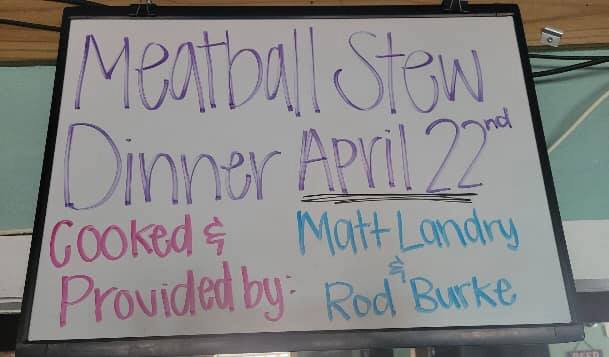 Meatball Stew
Dinner April 22nd
Cooked & Matt Landry
&
Provided by: Rod Burke